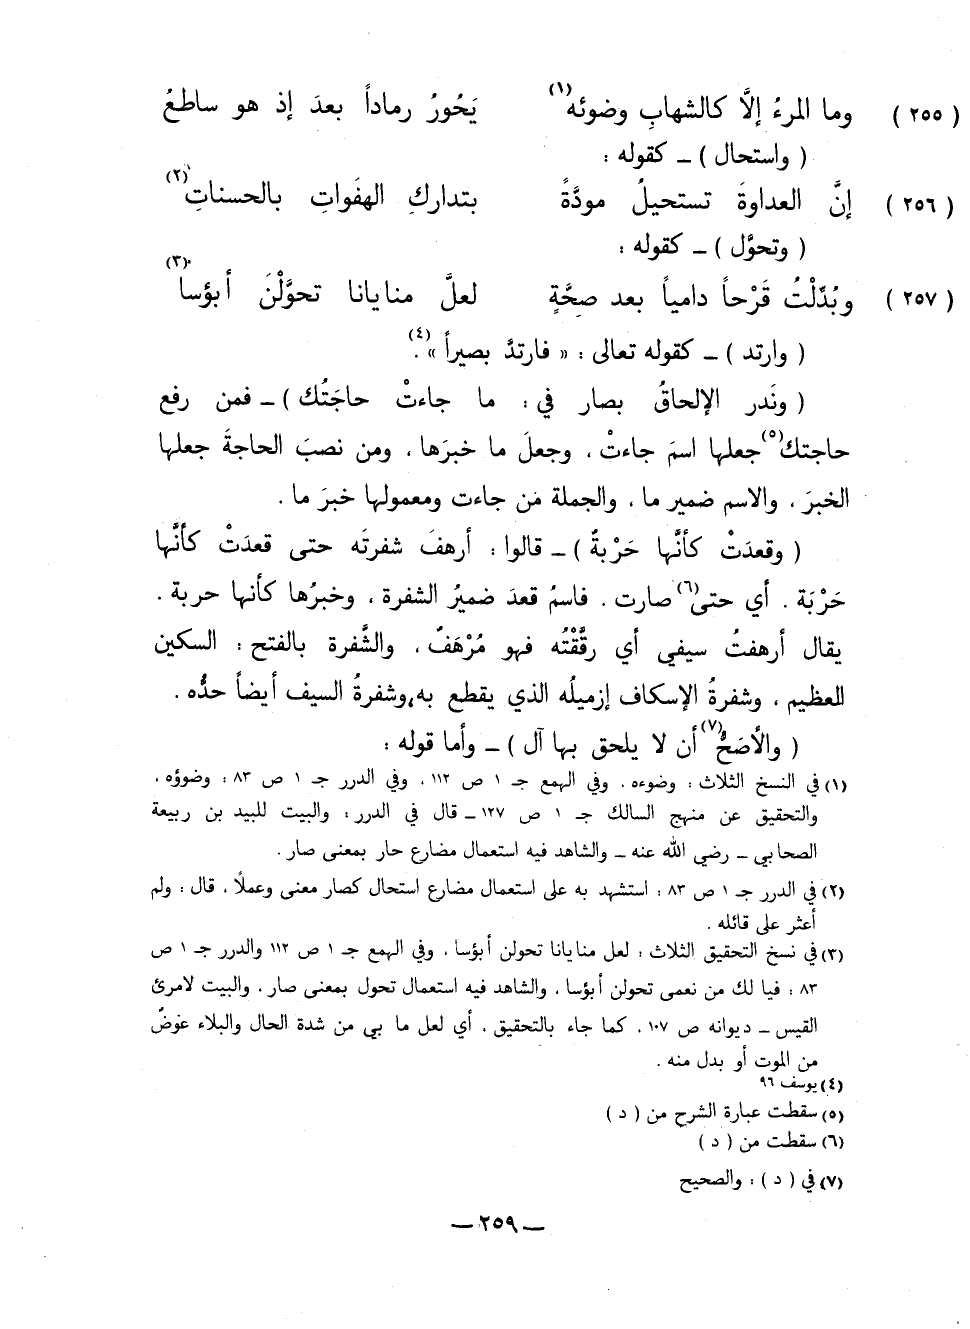 ( ٢٥٥ ) وما المرءُ إلَّا كالشهابِ وضوئه(١) يَحُورُ رماداً بعدَ إذ هو ساطعُ
( واستحال ) ــ كقوله :
( ٢٥٦ ) إنَّ العداوةَ تستحيلُ مودَّةً بتداركِ الهفَواتِ بالحسناتِ(٢)
( وتحوَّل ) ــ كقوله :
( ٢٥٧ ) وبُدِّلْتُ قَرْحاً دامياً بعد صحَّةٍ لعلَّ منايانا تحوَّلْنَ أبؤسا(٣)
( وارتد ) ــ كقوله تعالى : « فارتدَّ بصيراً »(٤).
( ونَدر الإلحاقُ بصار في : ما جاءتْ حاجَتُك ) ــ فمن رفع
حاجتك(٥) جعلها اسمَ جاءتْ ، وجعلَ ما خبرَها ، ومن نصبَ الحاجةَ جعلها
الخبرَ ، والاسم ضمير ما ، والجملة من جاءت ومعمولها خبرَ ما .
( وقعدَتْ كأنَّها حَرْبةٌ ) ــ قالوا : أرهفَ شفرتَه حتى قعدَتْ كأنَّها
حَرْبَة . أي حتى(٦) صارت . فاسمُ قعدَ ضميرُ الشفرة ، وخبرُها كأنها حربة .
يقال أرهفتُ سيفي أي رقَّقْتُه فهو مُرْهَفٌ ، والشَّفرة بالفتح : السكين
العظيم ، وشفرةُ الإسكاف إزميلُه الذي يقطع به، وشفرةُ السيف أيضاً حدُّه .
( والأصَحُّ(٧) أن لا يلحق بها آل ) ــ وأما قوله :
(١) في النسخ الثلاث : وضوءه . وفي الهمع جـ ١ ص ١١٢ ، وفي الدرر جـ ١ ص ٨٣ : وضوؤه ،
والتحقيق عن منهج السالك جـ ١ ص ١٢٧ ــ قال في الدرر : والبيت للبيد بن ربيعة
الصحابي ــ رضي الله عنه ــ والشاهد فيه استعمال مضارع حار بمعنى صار .
(٢) في الدرر جـ ١ ص ٨٣ : استشهد به على استعمال مضارع استحال كصار معنى وعملاً ، قال : ولم
أعثر على قائله .
(٣) في نسخ التحقيق الثلاث : لعل منايانا تحولن أبؤسا ، وفي الهمع جـ ١ ص ١١٢ والدرر جـ ١ ص
٨٣ : فيا لك من نعمى تحولن أبؤسا ، والشاهد فيه استعمال تحول بمعنى صار ، والبيت لامرئ
القيس ــ ديوانه ص ١٠٧ ، كما جاء بالتحقيق ، أي لعل ما بي من شدة الحال والبلاء عوضٌ
من الموت أو بدل منه .
(٤) يوسف ٩٦
(٥) سقطت عبارة الشرح من ( د )
(٦) سقطت من ( د )
(٧) في ( د ) : والصحيح
ــ ٢٥٩ ــ